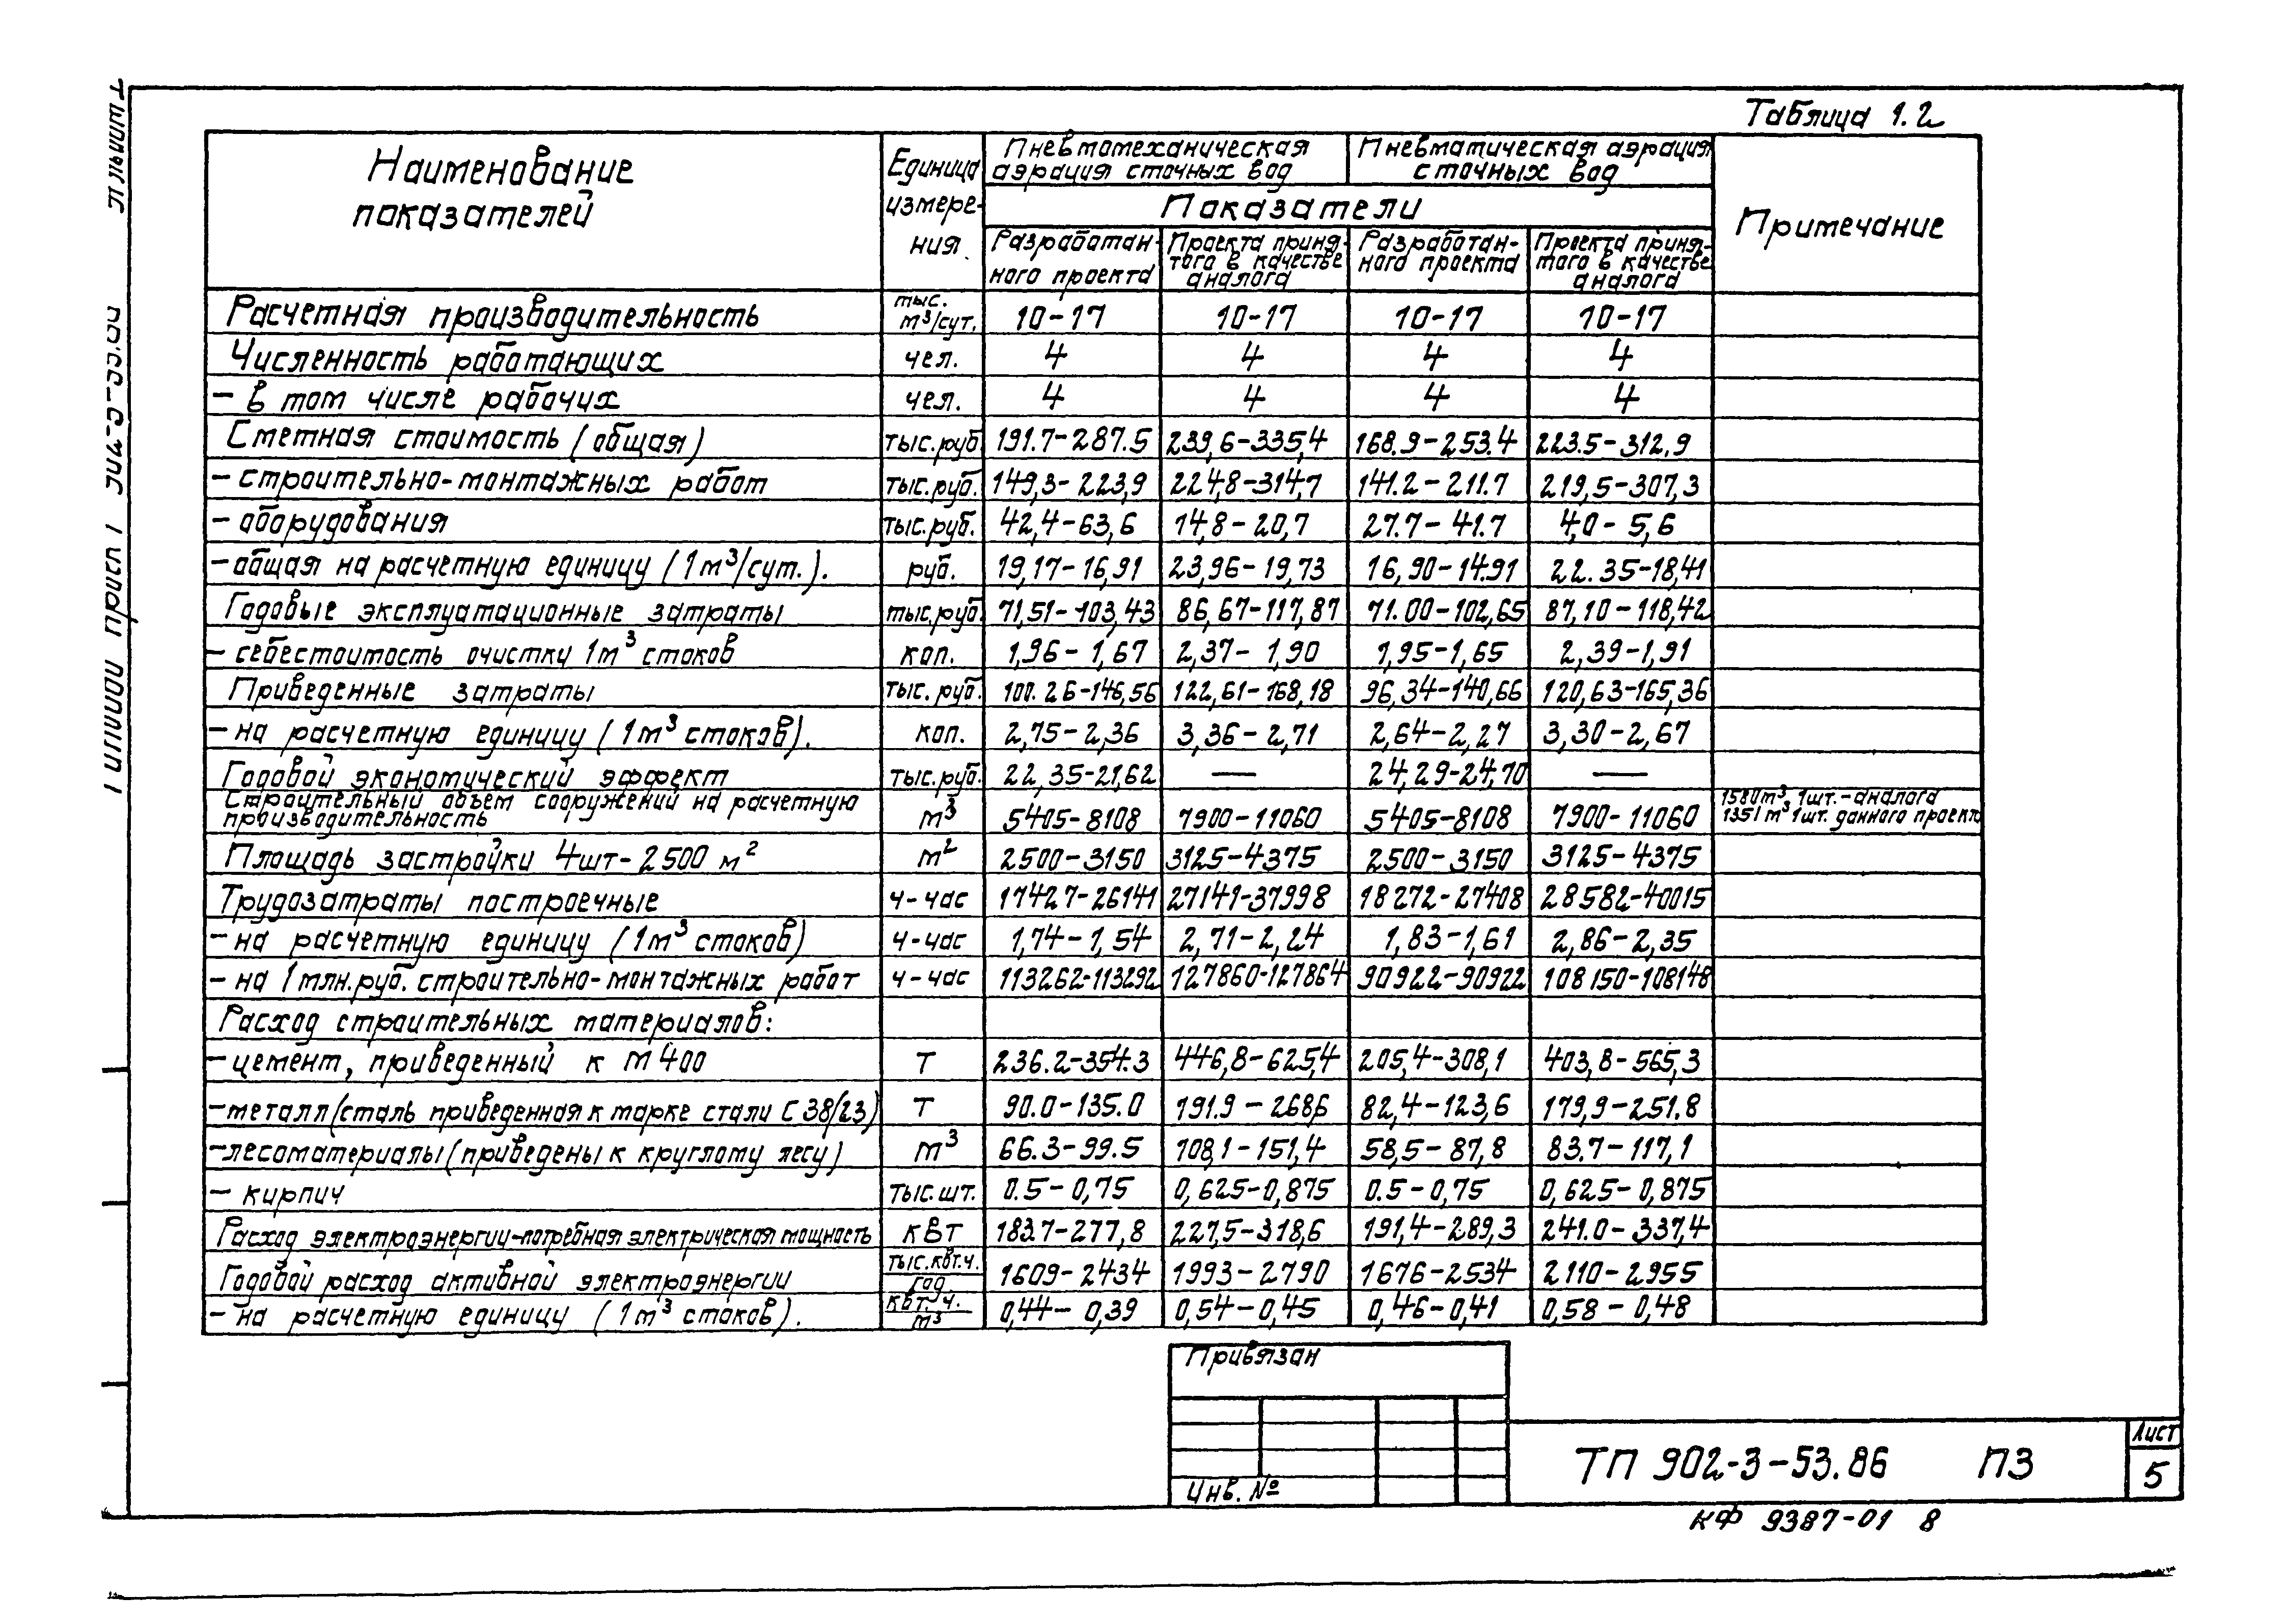 Таблица 1.2
Наименование показателей | Единица измерения | Пневмомеханическая аэрация сточных вод | Пневматическая аэрация сточных вод | Примечание
Показатели
Разработанного проекта | Проекта принятого в качестве аналога | Разработанного проекта | Проекта принятого в качестве аналога
Расчетная производительность | тыс. м³/сут. | 10-17 | 10-17 | 10-17 | 10-17
Численность работающих | чел. | 4 | 4 | 4 | 4
- в том числе рабочих | чел. | 4 | 4 | 4 | 4
Сметная стоимость (общая) | тыс.руб | 191.7-287.5 | 239,6-335,4 | 168.9-253.4 | 223.5-312.9
- строительно-монтажных работ | тыс.руб. | 149,3-223,9 | 224,8-314,7 | 141.2-211.7 | 219,5-307,3
- оборудования | тыс.руб. | 42,4-63,6 | 14,8-20,7 | 27.7-41.7 | 4,0-5,6
- общая на расчетную единицу (1м³/сут.). | руб. | 19,17-16,91 | 23,96-19,73 | 16,90-14.91 | 22.35-18,41
Годовые эксплуатационные затраты | тыс.руб. | 71,51-103,43 | 86,67-117,87 | 71.00-102,65 | 87,10-118,42
- себестоимость очистку 1м³ стоков | коп. | 1,96-1,67 | 2,37-1,90 | 1,95-1,65 | 2,39-1,91
Приведенные затраты | тыс.руб. | 100.26-146,56 | 122,61-168,18 | 96,34-140,66 | 120,63-165,36
- на расчетную единицу (1м³ стоков). | коп. | 2,75-2,36 | 3,36-2,71 | 2,64-2,27 | 3,30-2,67
Годовой экономический эффект | тыс.руб. | 22,35-21,62 | — | 24,29-24,70 | —
Строительный объем сооружений на расчетную производительность | м³ | 5405-8108 | 7900-11060 | 5405-8108 | 7900-11060 | 1580м³ 1шт.-аналога 1351 м³ 1шт. данного проекта
Площадь застройки 4шт-2500 м² | м² | 2500-3150 | 3125-4375 | 2500-3150 | 3125-4375
Трудозатраты построечные | ч-час | 17427-26141 | 27141-37998 | 18272-27408 | 28582-40015
- на расчетную единицу (1м³ стоков) | ч-час | 1,74-1,54 | 2,71-2,24 | 1,83-1,61 | 2,86-2,35
- на 1 млн.руб. строительно-монтажных работ | ч-час | 113262-113292 | 127860-127864 | 90922-90922 | 108150-108148
Расход строительных материалов:
- цемент, приведенный к М400 | Т | 236.2-354.3 | 446,8-625,4 | 205,4-308,1 | 403,8-565,3
- металл (сталь приведенная к марке стали С38/23) | Т | 90.0-135.0 | 191.9-268,6 | 82,4-123,6 | 179,9-251.8
- лесоматериалы (приведены к круглому лесу) | м³ | 66.3-99.5 | 108,1-151,4 | 58,5-87,8 | 83.7-117,1
- кирпич | тыс.шт. | 0.5-0,75 | 0,625-0,875 | 0.5-0,75 | 0,625-0,875
Расход электроэнергии-потребная электрическая мощность | кВт | 183.7-277,8 | 227,5-318,6 | 191,4-289,3 | 241.0-337,4
Годовой расход активной электроэнергии | тыс.квт.ч. год | 1609-2434 | 1993-2790 | 1676-2534 | 2110-2955
- на расчетную единицу (1м³ стоков). | квт.ч. м³ | 0,44-0,39 | 0,54-0,45 | 0,46-0,41 | 0,58-0,48
Привязан
Инв. №
ТП 902-3-53.86 ПЗ
Лист
5
КФ 9387-01 8